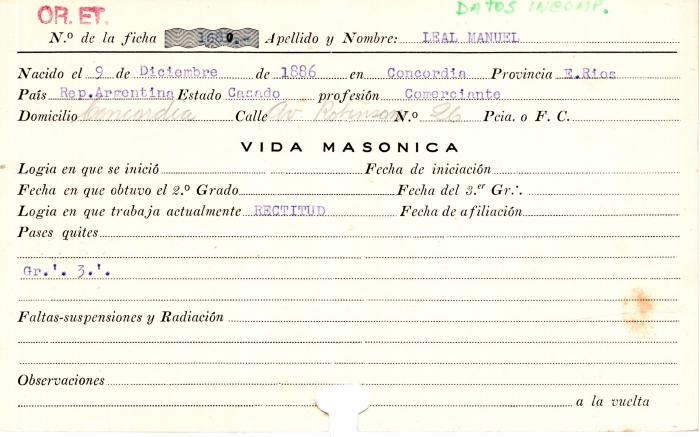 OR. ET.
DATOS INCOMP.
N.º de la ficha Apellido y Nombre: LEAL MANUEL
Nacido el 9 de Diciembre de 1886 en Concordia Provincia E.Rios
País Rep.Argentina Estado Casado profesión Comerciante
Domicilio Concordia Calle Av Robinson N.º 26 Pcia. o F. C.
VIDA MASONICA
Logia en que se inició Fecha de iniciación
Fecha en que obtuvo el 2.º Grado Fecha del 3.er Gr.·.
Logia en que trabaja actualmente RECTITUD Fecha de afiliación
Pases quites
Gr.'. 3.'.
Faltas-suspensiones y Radiación
Observaciones
a la vuelta